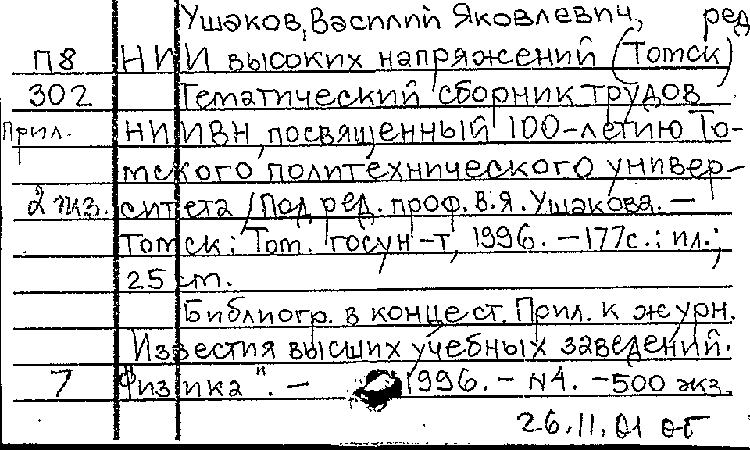 Ушаков, Василий Яковлевич, ред
П8 НИИ высоких напряжений (Томск)
302 Тематический сборник трудов
Прил. НИИВН, посвященный 100-летию То-
мского политехнического универ-
2 экз. ситета / Под ред. проф. В.Я. Ушакова. —
Томск: Том. госун-т, 1996. — 177с.: ил.;
25 см.
Библиогр. в конце ст. Прил. к журн.
Известия высших учебных заведений.
7 "Физика". — 1996. — N4. — 500 экз.
26.11.01